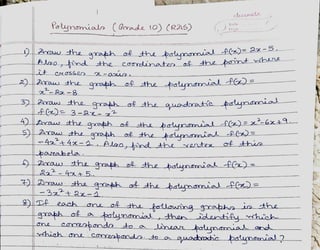 Polynomials (Grade 10) (R2S)
1) Draw the graph of the polynomial f(x)= 2x-5.
Also, find the coordinates of the point where
it crosses x-axis.
2) Draw the graph of the polynomial f(x) =
x²-2x-8
3) Draw the graph of the quadratic polynomial
f(x)= 3-2x-x²
4) Draw the graph of the polynomial f(x)=x²-6x+9.
5) Draw the graph of the polynomial f(x)=
-4x²+4x-1. Also, find the vertex of this
parabola.
6) Draw the graph of the polynomial f(x) =
2x²-4x+5.
7) Draw the graph of the polynomial f(x)=
-3x²+2x-1
8) If each one of the following graphs is the
graph of a polynomial, then identify which
one corresponds to a linear polynomial and
which one corresponds to a quadratic polynomial?